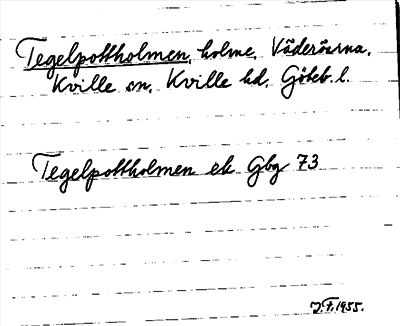 Tegelpottholmen, holme, Väderöarna,
Kville sn, Kville hd, Göteb. l.
Tegelpottholmen ek Gbg 73
J.F. 1955.